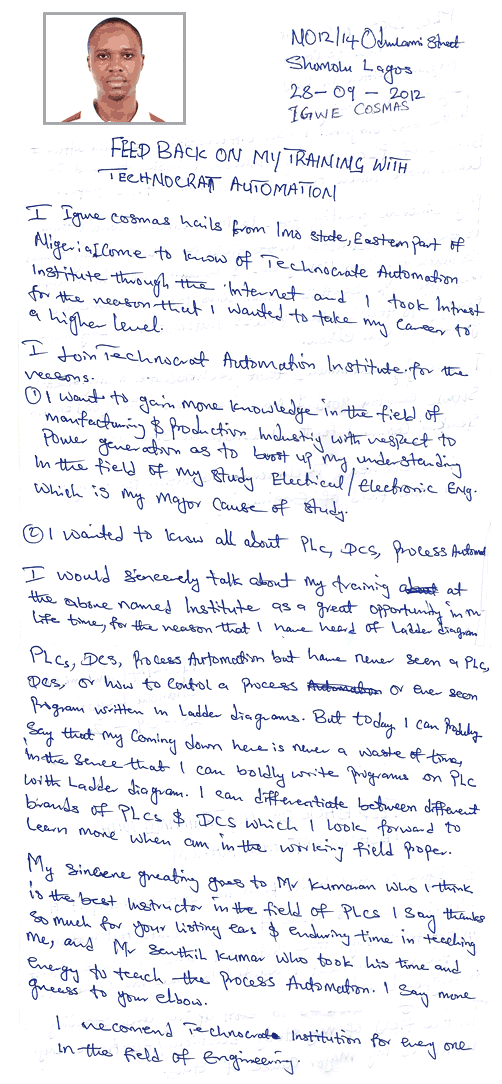 NO12/14 Odunlami Street
Shomolu Lagos
28-09-2012
IGWE COSMAS
FEED BACK ON MY TRAINING WITH
TECHNOCRAT AUTOMATION
I Igwe cosmas hails from Imo state, Eastern part of
Nigeria I Come to know of Technocrate Automation
Institute through the Internet and I took Intrest
for the reason that I wanted to take my Career to
a higher level.
I Join Technocrat Automation Institute for the
reasons.
① I want to gain more knowledge in the field of
manufacturing & production Industry with respect to
Power generation as to boost up my understanding
In the field of my study Electical/Electronic Eng.
which is my major Cause of study.
② I wanted to know all about PLC, DCS, process Automat
I would sencerely talk about my training about at
the above named Institute as a great opportunity in m
life time, for the reason that I have heard of Ladder diagram
PLCs, DCS, Process Automation but have never seen a PLC,
DCS, or how to control a process Automation or ever seen
Program written in Ladder diagrams. But today I can Proudly
Say that my Coming down here is never a waste of time,
in the sence that I can boldly write programs on PLC
with Ladder diagram. I can differentiate between different
brands of PLCs & DCS which I look forward to
learn more when am in the working field proper.
My sincere greating goes to Mr Kumaran who I think
is the best Instructor in the field of PLCs I Say thanks
so much for your listing ears & enduring time in teaching
me, and Mr Senthil Kumar who took his time and
energy to teach the Process Automation. I say more
greess to your elbow.
I recomend Technocrate Institution for every one
in the field of Engineering.